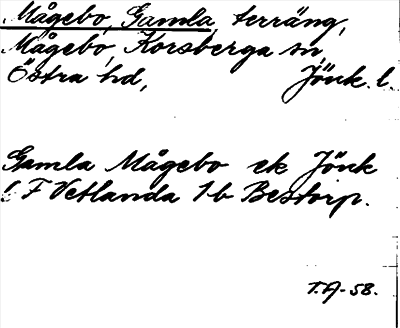 Mågebo, Gamla, terräng,
Mågebo, Korsberga sn,
Östra hd, Jönk. l.
Gamla Mågebo ek Jönk
l F Vetlanda 7b Bestorp.
T.A-58.